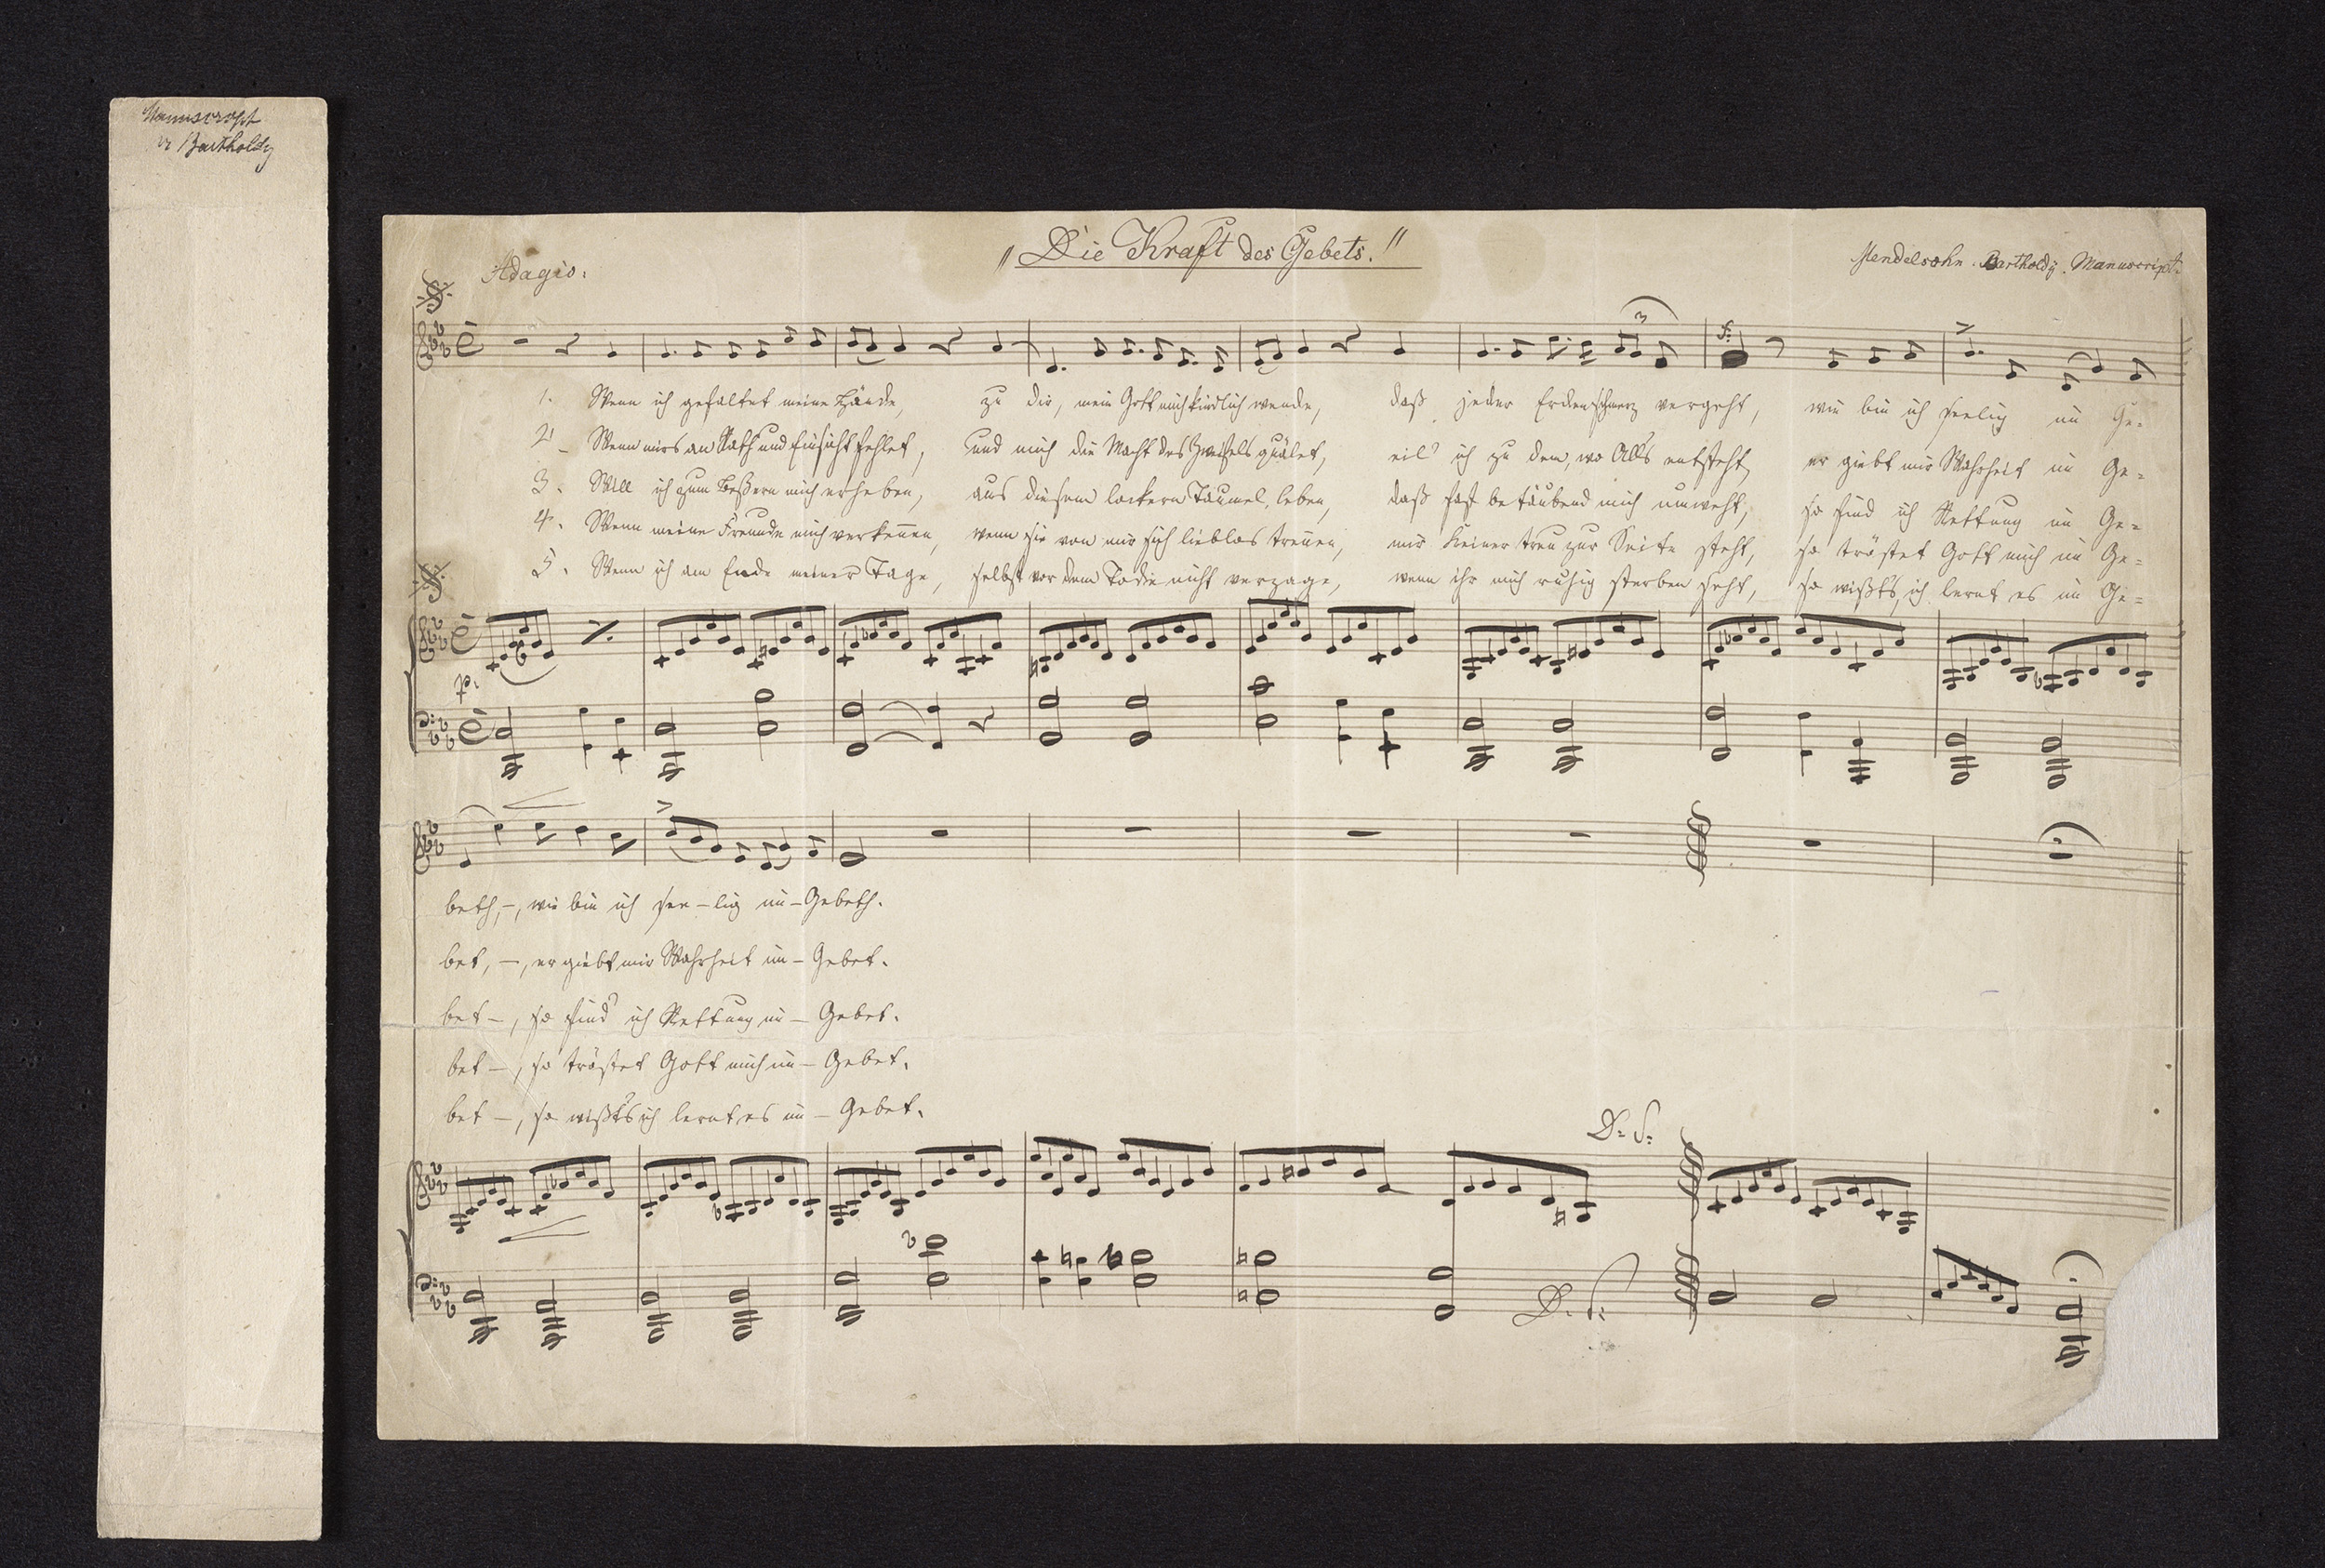 Manuscript
v. Bartholdy
„Die Kraft des Gebets.“
Adagio.
Mendelsohn. Bartholdÿ. Manuscript.
3
f:
1. Wenn ich gefaltet meine Hände, zu dir, mein Gott mich kindlich wende, daß jeder Erdenschmerz vergeht, wie bin ich seelig im Ge=
2 Wenn mirs an Rath und Einsicht fehlet, und mich die Macht des Zweifels quälet, eil' ich zu dem, wo All's entsteht, er giebt mir Wahrheit im Ge=
3. Will ich zum Beßern mich erheben, aus diesem lockern Taumel, leben, daß fast betäubend mich umweht, so find ich Rettung im Ge=
4. Wenn meine Freunde mich verkennen, wenn sie von mir sich lieblos trennen, mir Keiner treu zur Seite steht, so tröstet Gott mich im Ge=
5. Wenn ich am Ende meiner Tage, selbst vor dem Tode nicht verzage, wenn ihr mich ruhig sterben seht, so wißt's, ich lernt es im Ge=
p.
beth, –, wie bin ich see–lig im – Gebeth.
bet, –, er giebt mir Wahrheit im – Gebet.
bet –, so find' ich Rettung im – Gebet.
bet –, so tröstet Gott mich im – Gebet.
bet –, so wißt's ich lernt es im – Gebet.
D: S:
D: S: